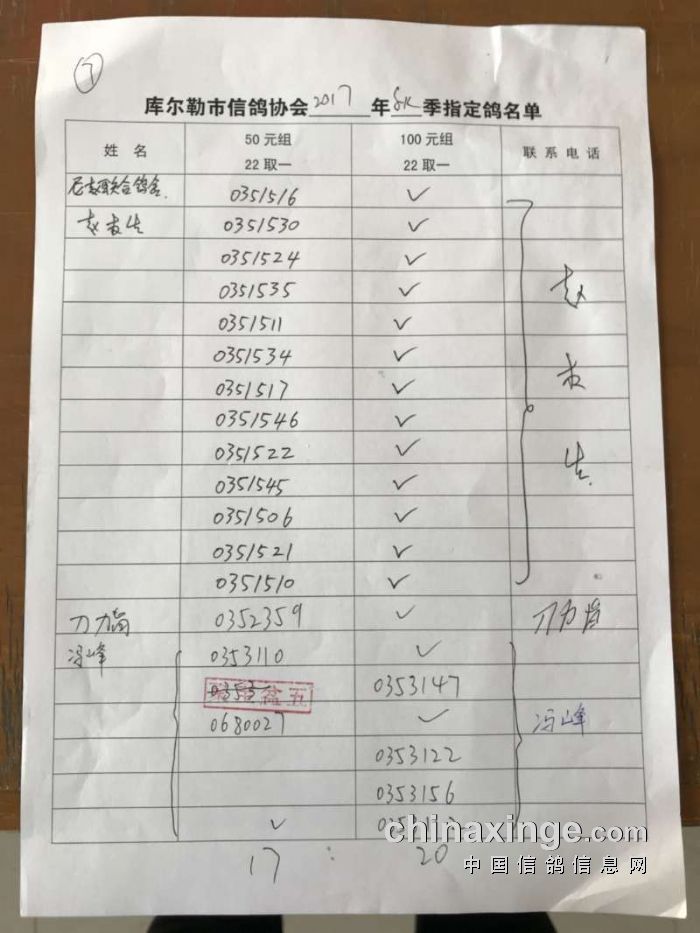 7
库尔勒市信鸽协会2017年秋季指定鸽名单
姓 名 50元组 22取一 100元组 22取一 联系电话
0351516 ✓
0351530 ✓
0351524 ✓
0351535 ✓
0351511 ✓
0351534 ✓
0351517 ✓
0351546 ✓
0351522 ✓
0351545 ✓
0351506 ✓
0351521 ✓
0351510 ✓
0352359 ✓
冯峰 0353110 ✓ 冯峰
0353147
0680027 ✓
0353122
0353156
✓
17 : 20
chinaxinge.com
中国信鸽信息网